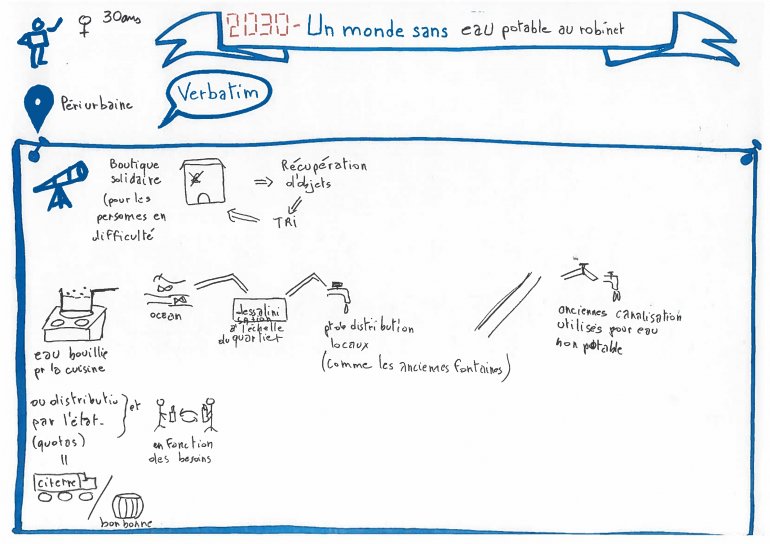 30ans
2030- Un monde sans eau potable au robinet
Périurbaine
Verbatim
Boutique
solidaire
(pour les
personnes en
difficulté
Récupération
d'objets
TRi
ocean
dessalini
sation
à l'échelle
du quartier
pt de distribution
locaux
(comme les anciennes fontaines)
anciennes canalisation
utilisés pour eau
non potable
eau bouillie
pr la cuisine
ou distributio
par l'état-
(quotas)
et
en fonction
des besoins
=
citerne
/
bonbonne